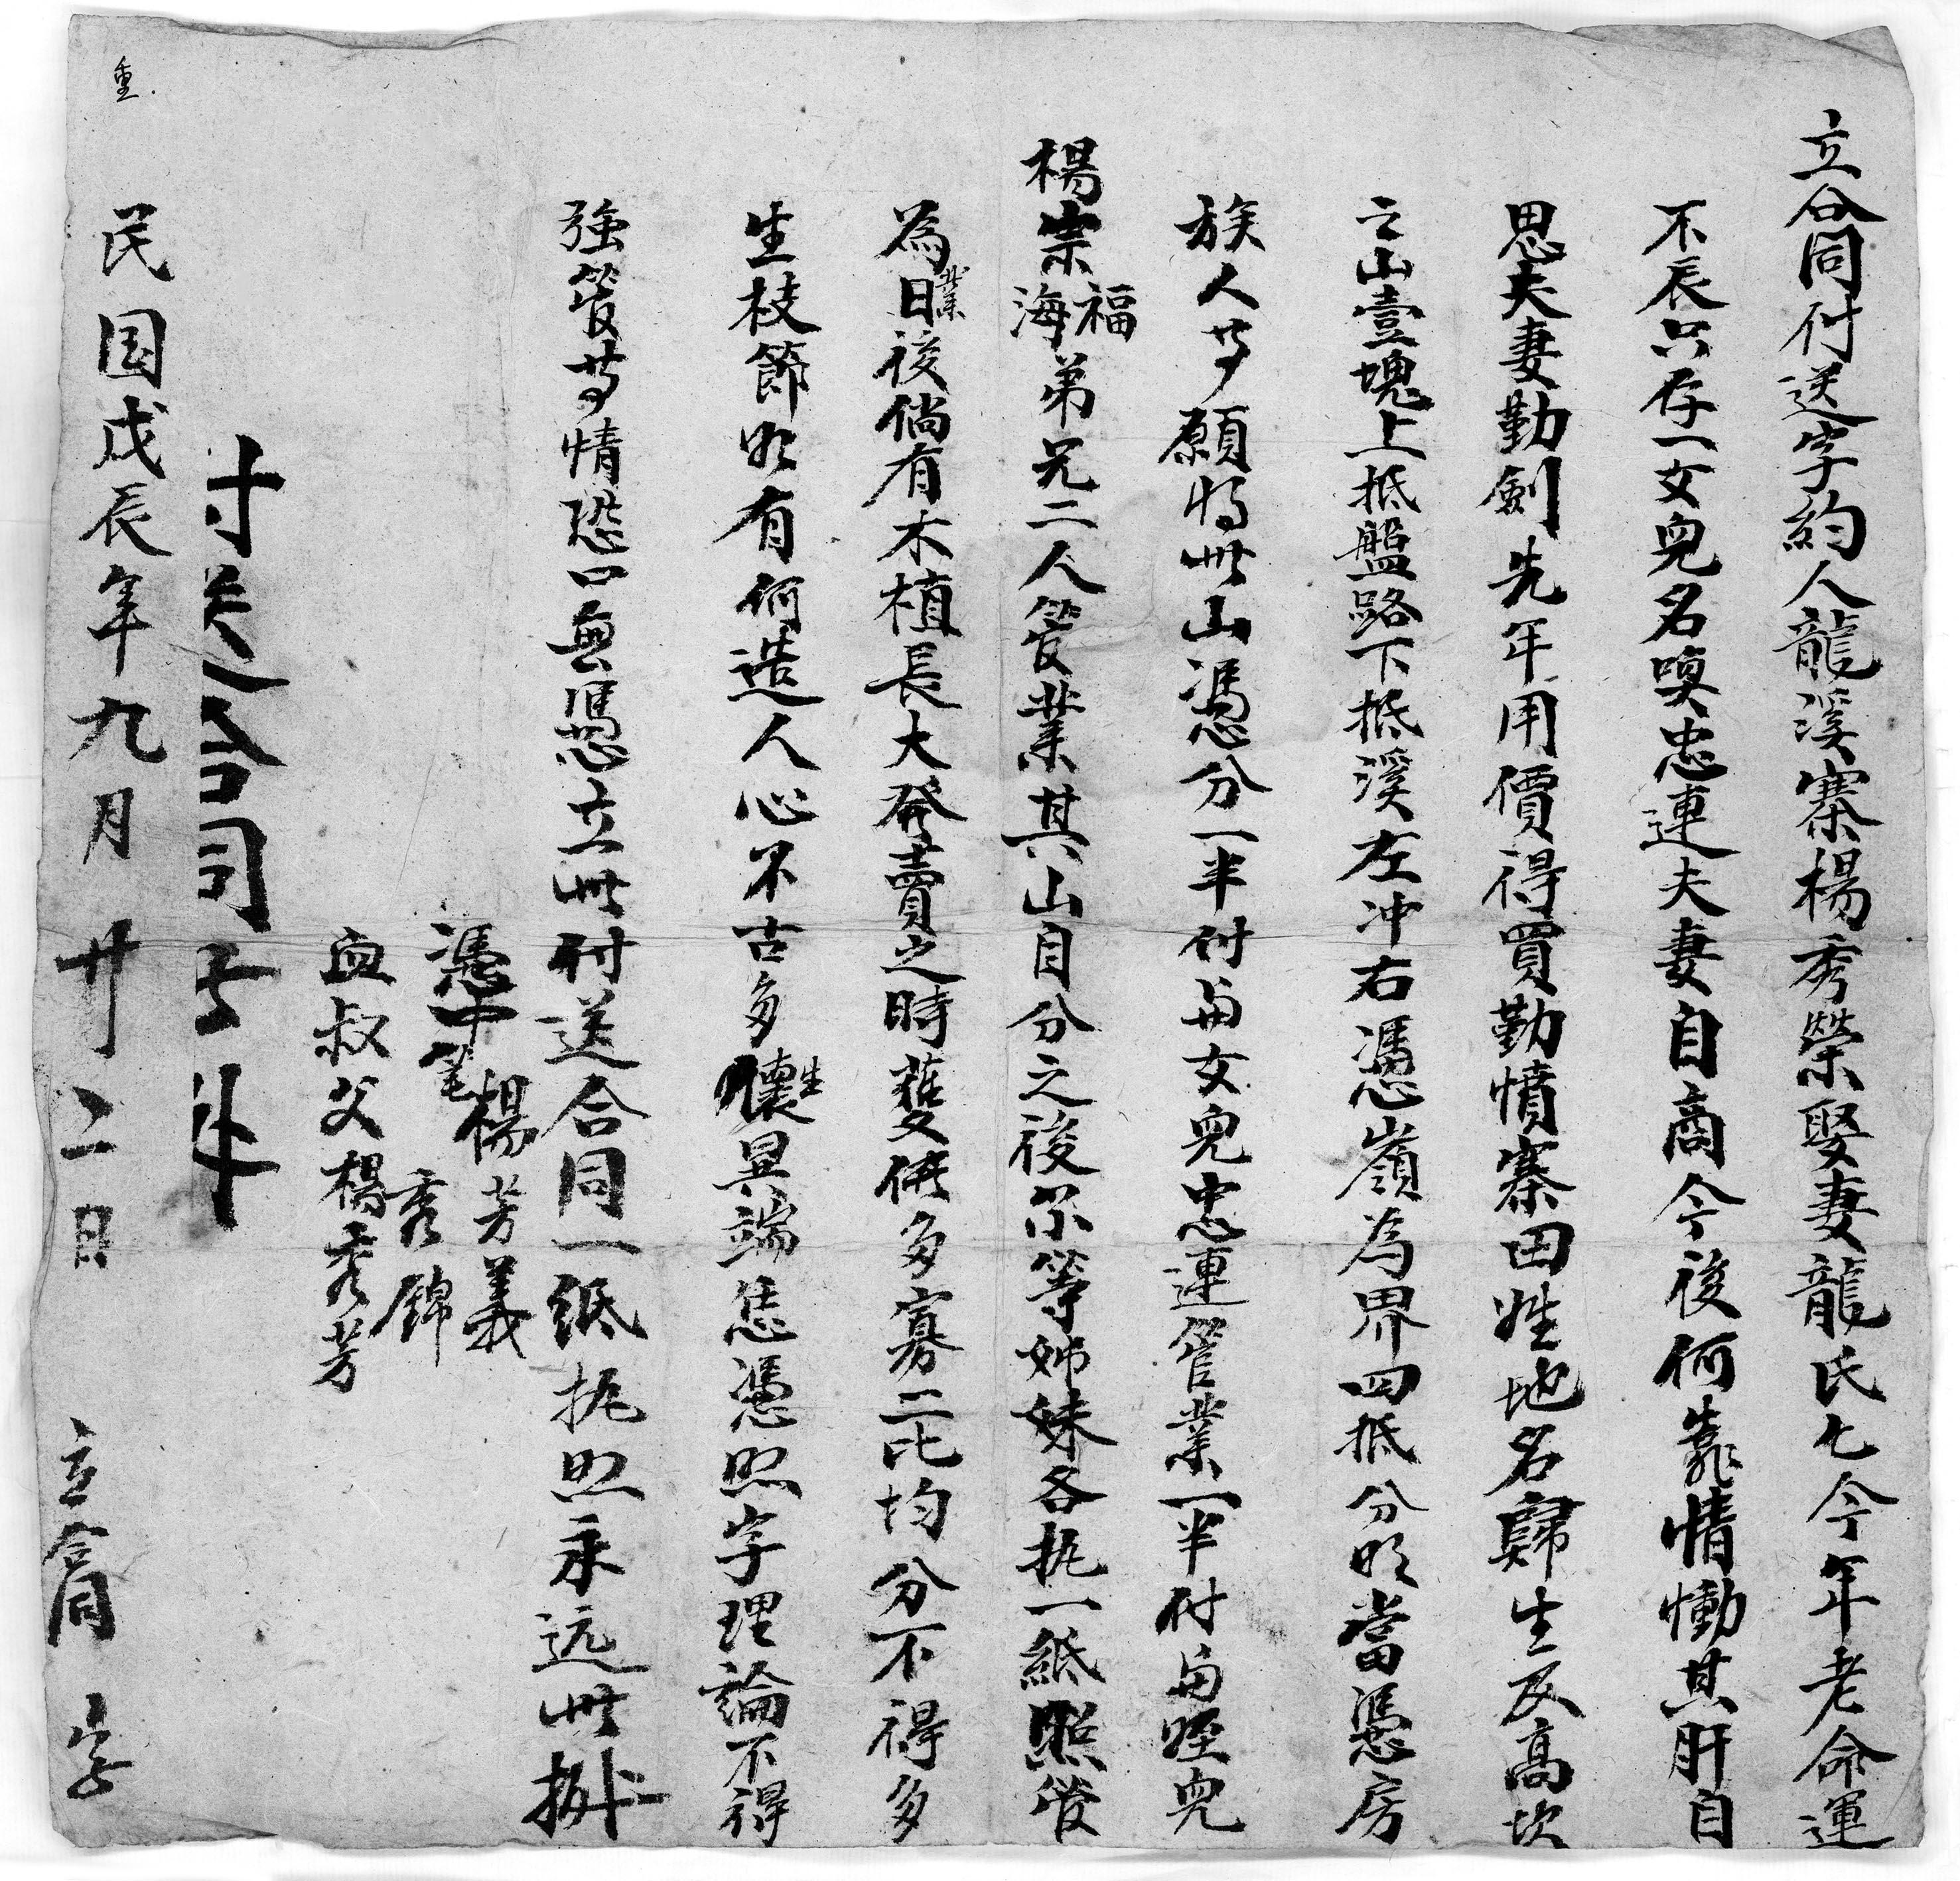 立合同付送字約人龍溪寨楊秀榮娶妻龍氏乜今年老命運
不辰只存一女兒名喚忠連夫妻自商今後何靠情慟其肝自
思夫妻勤劍先年用價得買勤憤寨田姓地名歸生反髙坎
之山壹塊上抵盤路下抵溪左冲右憑嶺為界四抵分明當憑房
族人等願將此山憑分一半付與女兒忠連管業一半付與姪兒
楊宗福海弟兄二人管業其山自分之後尔等姊妹各执一紙照管
為業日後倘有木植長大發賣之時獲伕多寡二比均分不得多
生枝節如有何造人心不古多生懷異端恁憑照字理論不得
強管等情恐口無憑立此付送合同一紙执照永远此拠
憑中 楊芳義
筆 秀錦
血叔父楊秀芳
付送合同二紙
民国戊辰年九月廿二日 立合同字
重